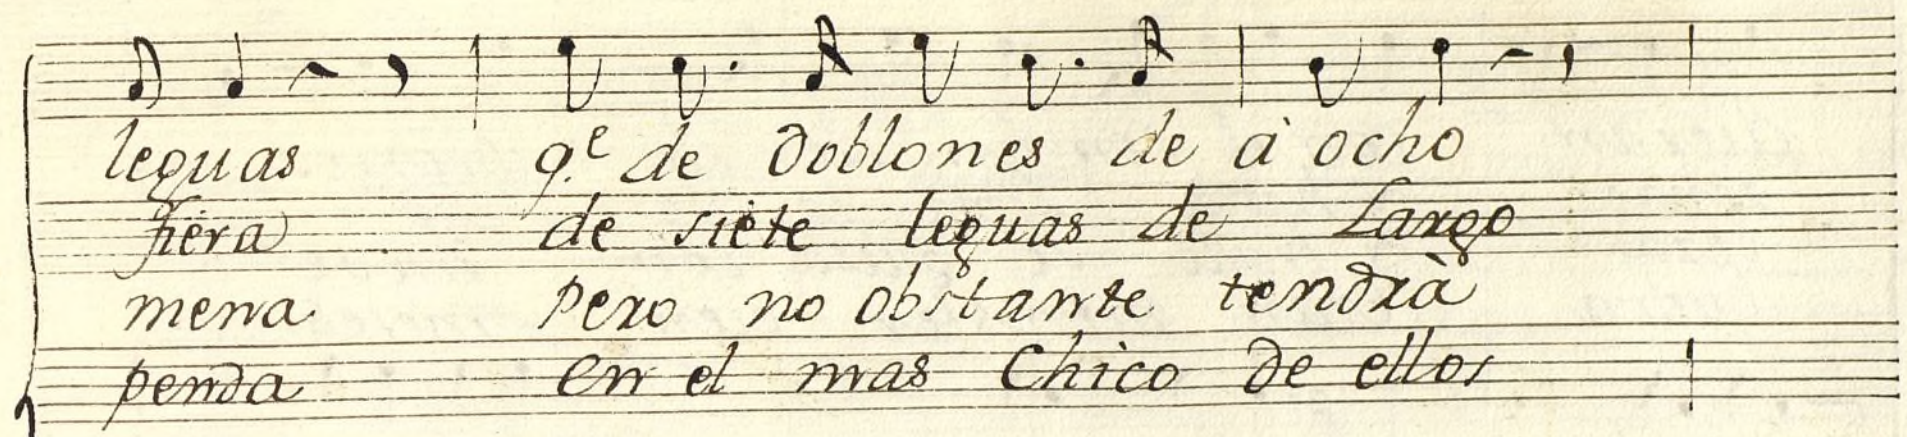 leguas q.e de doblones de à ocho
fiera de siete leguas de Largo
mena pero no obstante tendrà
penda en el mas Chico de ellos